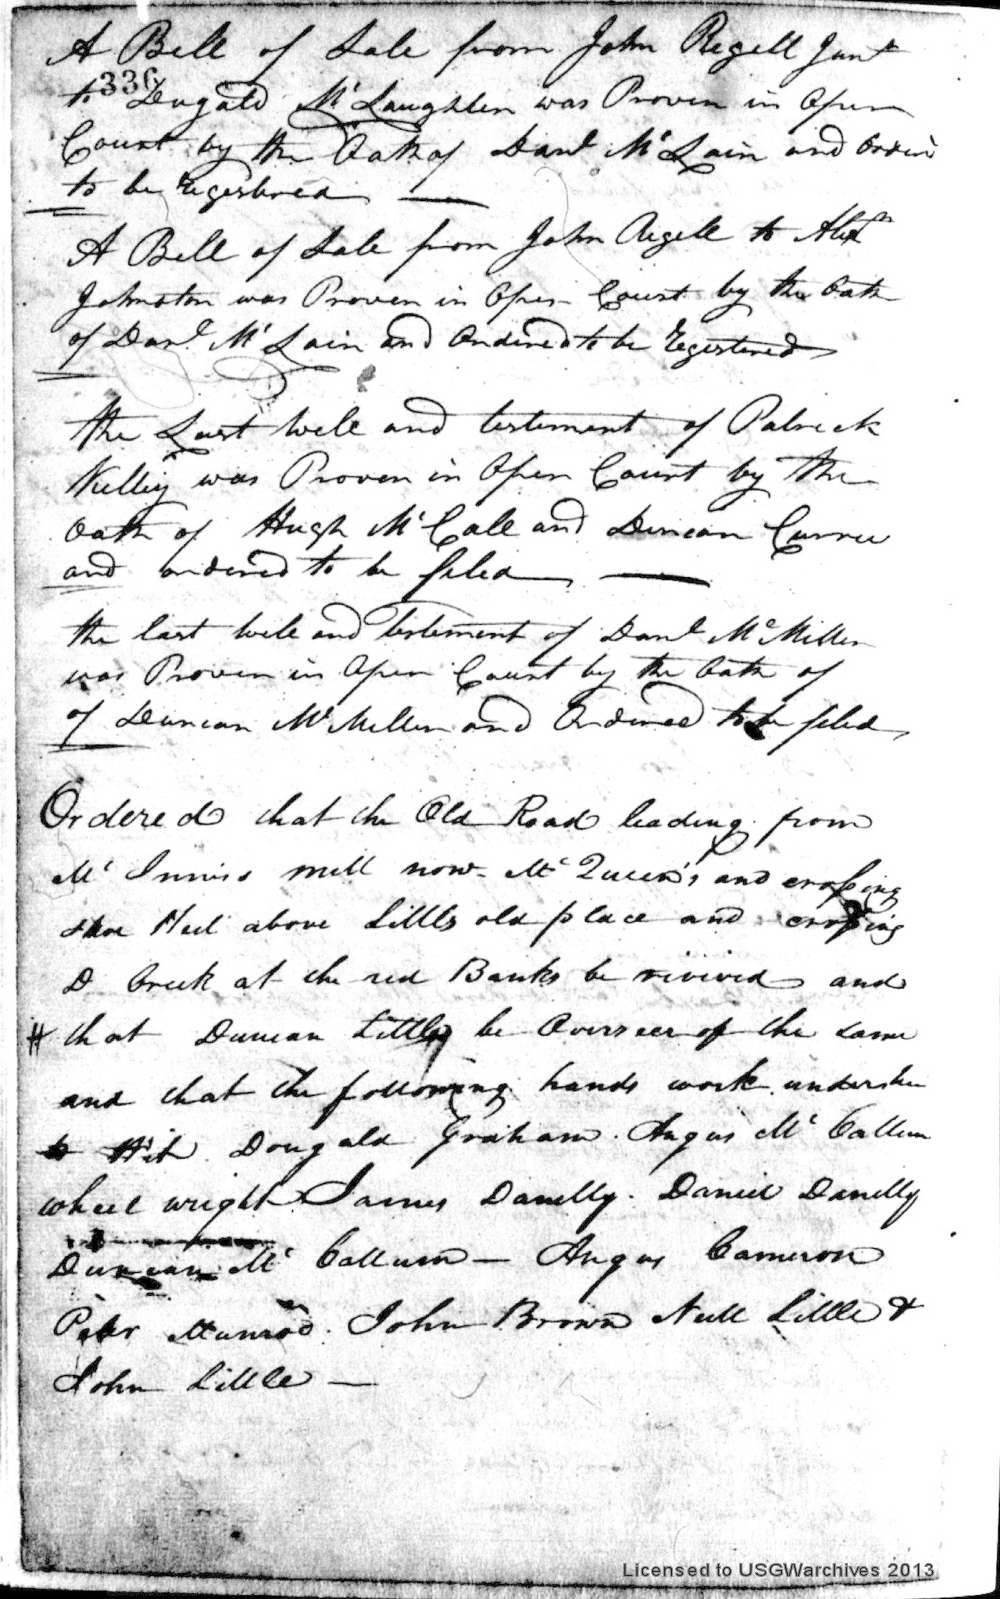 A Bill of Sale from John Regell Junr
336
to Dugald Mc Laughlin was Proven in Open
Court by the Oath of Danl Mc Lain and Orderd
to be Regestered
A Bill of Sale from John Regell to Alexn
Johnston was Proven in Open Court by the Oath
of Danl Mc Lain and Ordered to be Regestered
the Last Will and testement of Patrick
was Proven in Open Court by the
Oath of Hugh Mc Call and Duncan Currie
and ordered to be filed
the last Will and testement of Danl Mc Millen
was Proven in Open Court by the Oath of
of Duncan Mc Millen and Ordered to be filed
Ordered that the Old Road leading from
Mc Inniss mill now Mc Queen's and crossing
above Littles old place and crossing
D Creek at the red Banks be revived and
# that Duncan Little be Overseer of the same
and that the following hands work under him
to Wit Dougald Graham Angus Mc Callum
wheel wright James Danelly Daniel Danelly
Duncan Mc Callum — Angus Cameron
Peter Munroe John Brown Neill Little &
John Little —
Licensed to USGWarchives 2013